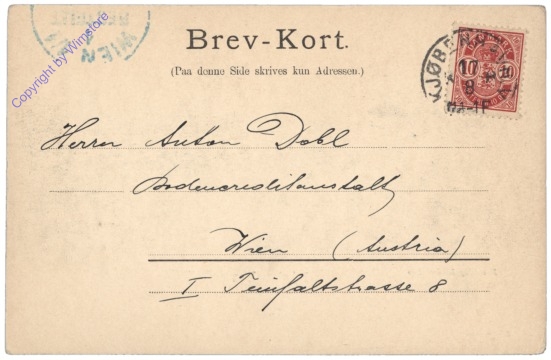 WIEN
Copyright by Wimstore
Brev-Kort.
(Paa denne Side skrives kun Adressen.)
KJØBENHAVN
10
8
Herrn Anton Dobl
Bodencreditanstalt
Wien (Austria)
I Teinfaltstrasse 8